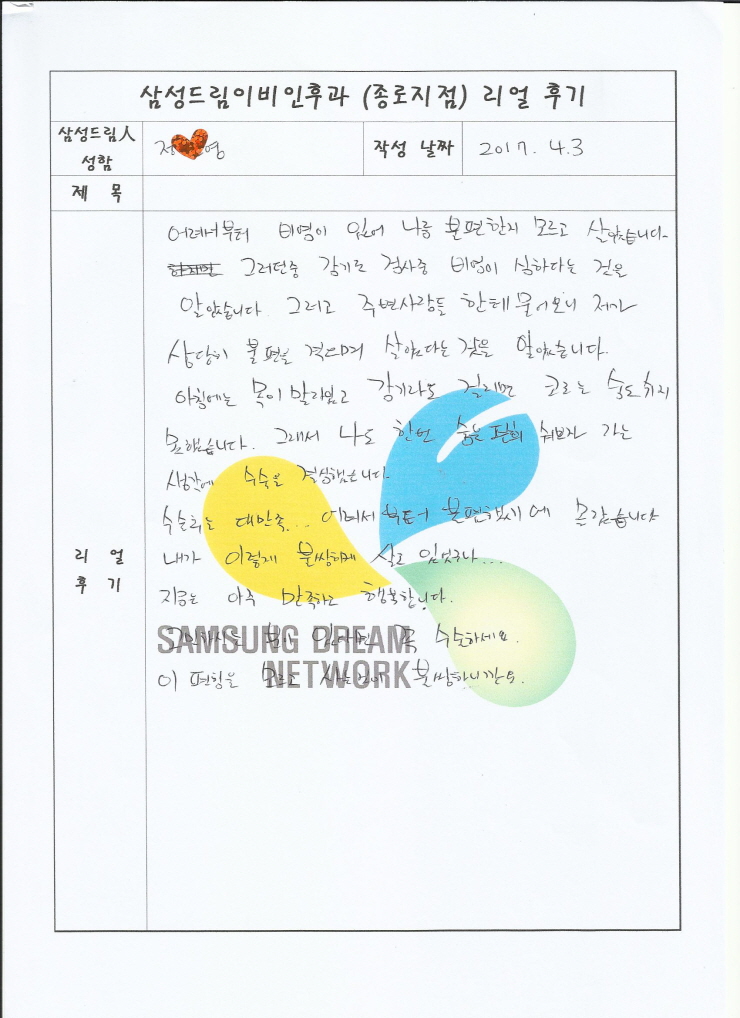 삼성드림이비인후과 (종로지점) 리얼 후기
삼성드림人
성함
전 영
작성 날짜
2017. 4.3
제 목
리 얼
후 기
어려서부터 비염이 있어 나름 불편한지 모르고 살았습니다.
그러던중 감기로 검사중 비염이 심하다는 것을
알았습니다. 그리고 주변사람들 한테 물어보니 제가
상당히 불편을 격으며 살았다는 것을 알았습니다.
아침에는 목이 말라있고 감기라도 걸리면 코로는 숨도 쉬지
못했습니다. 그래서 나도 한번 숨을 편희 쉬보자 가는
생각에 수술을 결심했습니다.
수술후는 대만족... 어려서부터 불편했기에 몰랐습니다
내가 이렇게 불쌍하게 살고 있었구나...
지금은 아주 만족하고 행복합니다.
고민하시는 분이 있다면 꼭 수술하세요.
이 편함을 모르고 사는것이 불쌍하니깐요.
SAMSUNG DREAM
NETWORK